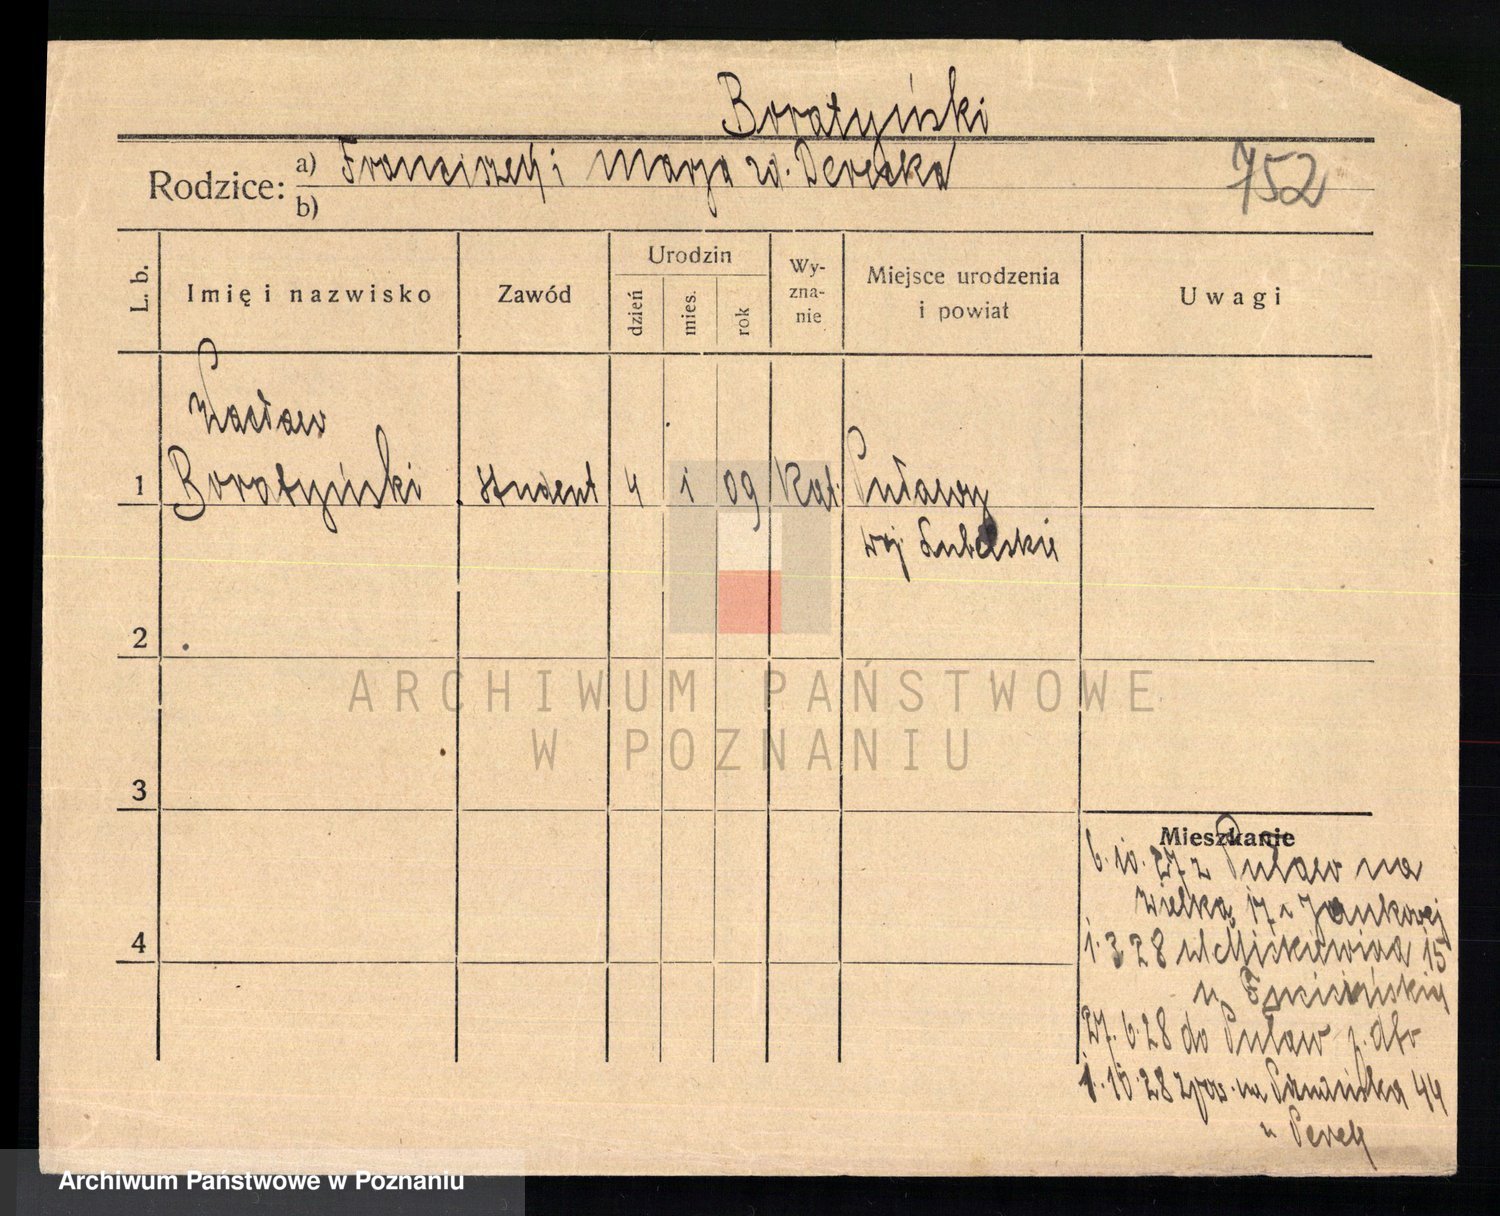 Boratyński
Rodzice: a) Franciszek i Marja zd. Derecka
752
b)
L. b.
Imię i nazwisko
Zawód
Urodzin
dzień
mies.
rok
Wy-
zna-
nie
Miejsce urodzenia
i powiat
Uwagi
Wacław
1 Boratyński student 4 1 09 Kat. Puławy
woj. Lubelskie
2
ARCHIWUM PAŃSTWOWE
W POZNANIU
3
Mieszkanie
6.10.27 z Puław na
Wielką 17 u Jankowej
4
1.3.28 ul Mickiewicza 15
u
27.6.28 do Puław
1.10.28 na 44
u
Archiwum Państwowe w Poznaniu